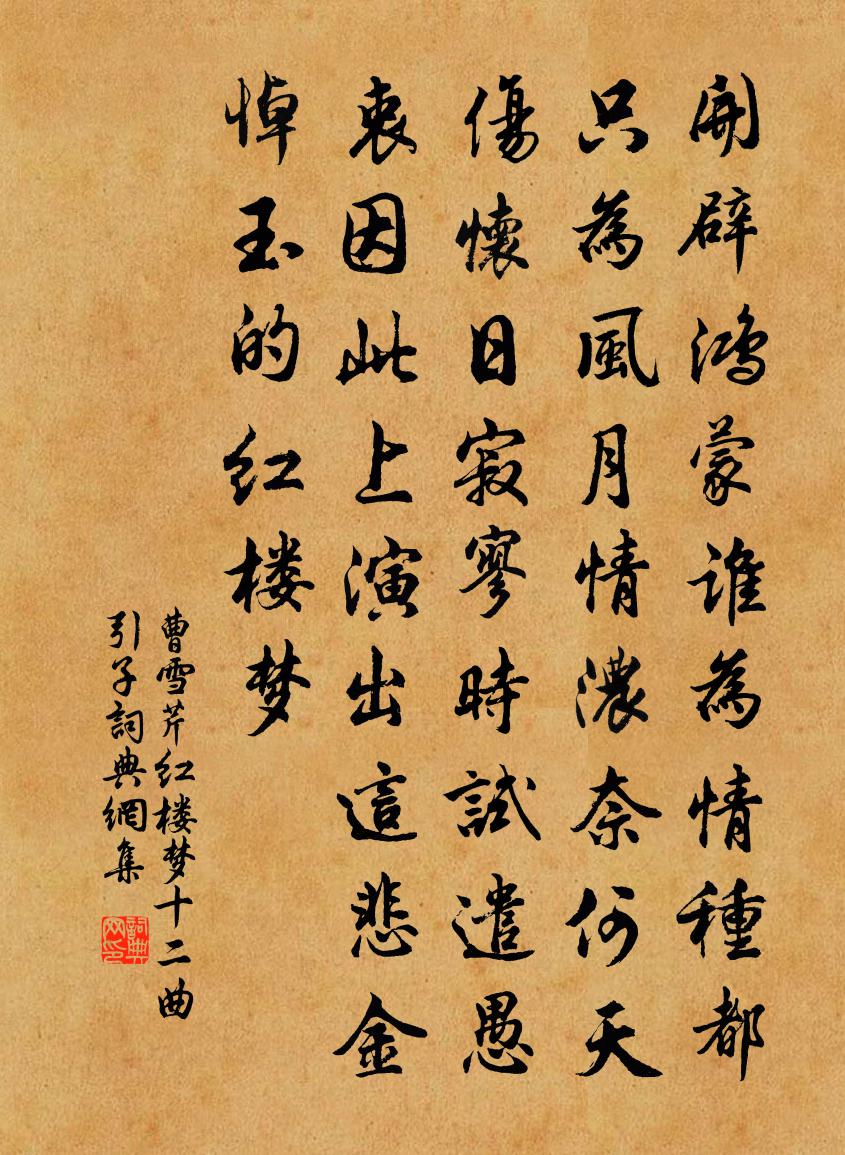 開辟鸿蒙誰為情種都
只為風月情濃奈何天
傷懷日寂寥時試遣愚
衷因此上演出這悲金
悼玉的红楼梦
曹雪芹红楼梦十二曲
引子詞典網集
詞典
网印